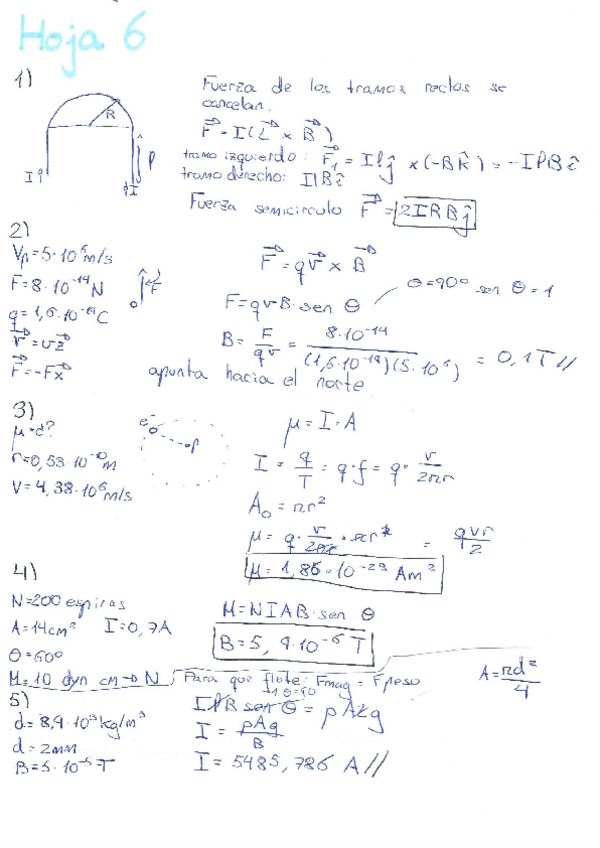 Hoja 6
1)
Fuerza de los tramos rectos se
cancelan.
F = I(L × B)
tramo izquierdo: F₁ = Ilĵ × (-Bk̂) = -IlBî
tramo derecho: IlBî
Fuerza semicirculo F = 2IRBĵ
R
l
I
I
2)
Vp=5·10⁶m/s
F=8·10⁻¹⁴N
q=1,6·10⁻¹⁹C
v=vz
F=-Fx
F
F=qv × B
F=qvB·sen θ
θ=90º sen θ=1
B = F/qv = 8·10⁻¹⁴/(1,6·10⁻¹⁹)(5·10⁶) = 0,1T//
apunta hacia el norte
3)
r=0,53·10⁻¹⁰m
V=4,38·10⁶m/s
e⁻
p
μ=I·A
I = q/T = q·f = q· v/2πr
A₀ = πr²
μ= q· v/2πr ·πr² = qvr/2
μ= 1,86·10⁻²³ Am²
4)
N=200 espiras
A=14cm² I=0,7A
θ=60º
M=10 dyn cm → N
M=NIAB·sen θ
B=5,9·10⁻⁶ T
5)
d=8,9·10³kg/m³
d=2mm
B=5·10⁻⁵T
Para que flote: Fmag = Fpeso
θ=90
IlB sen θ = ρAlg
A=πd²/4
I = ρAg/B
I = 5485,786 A//